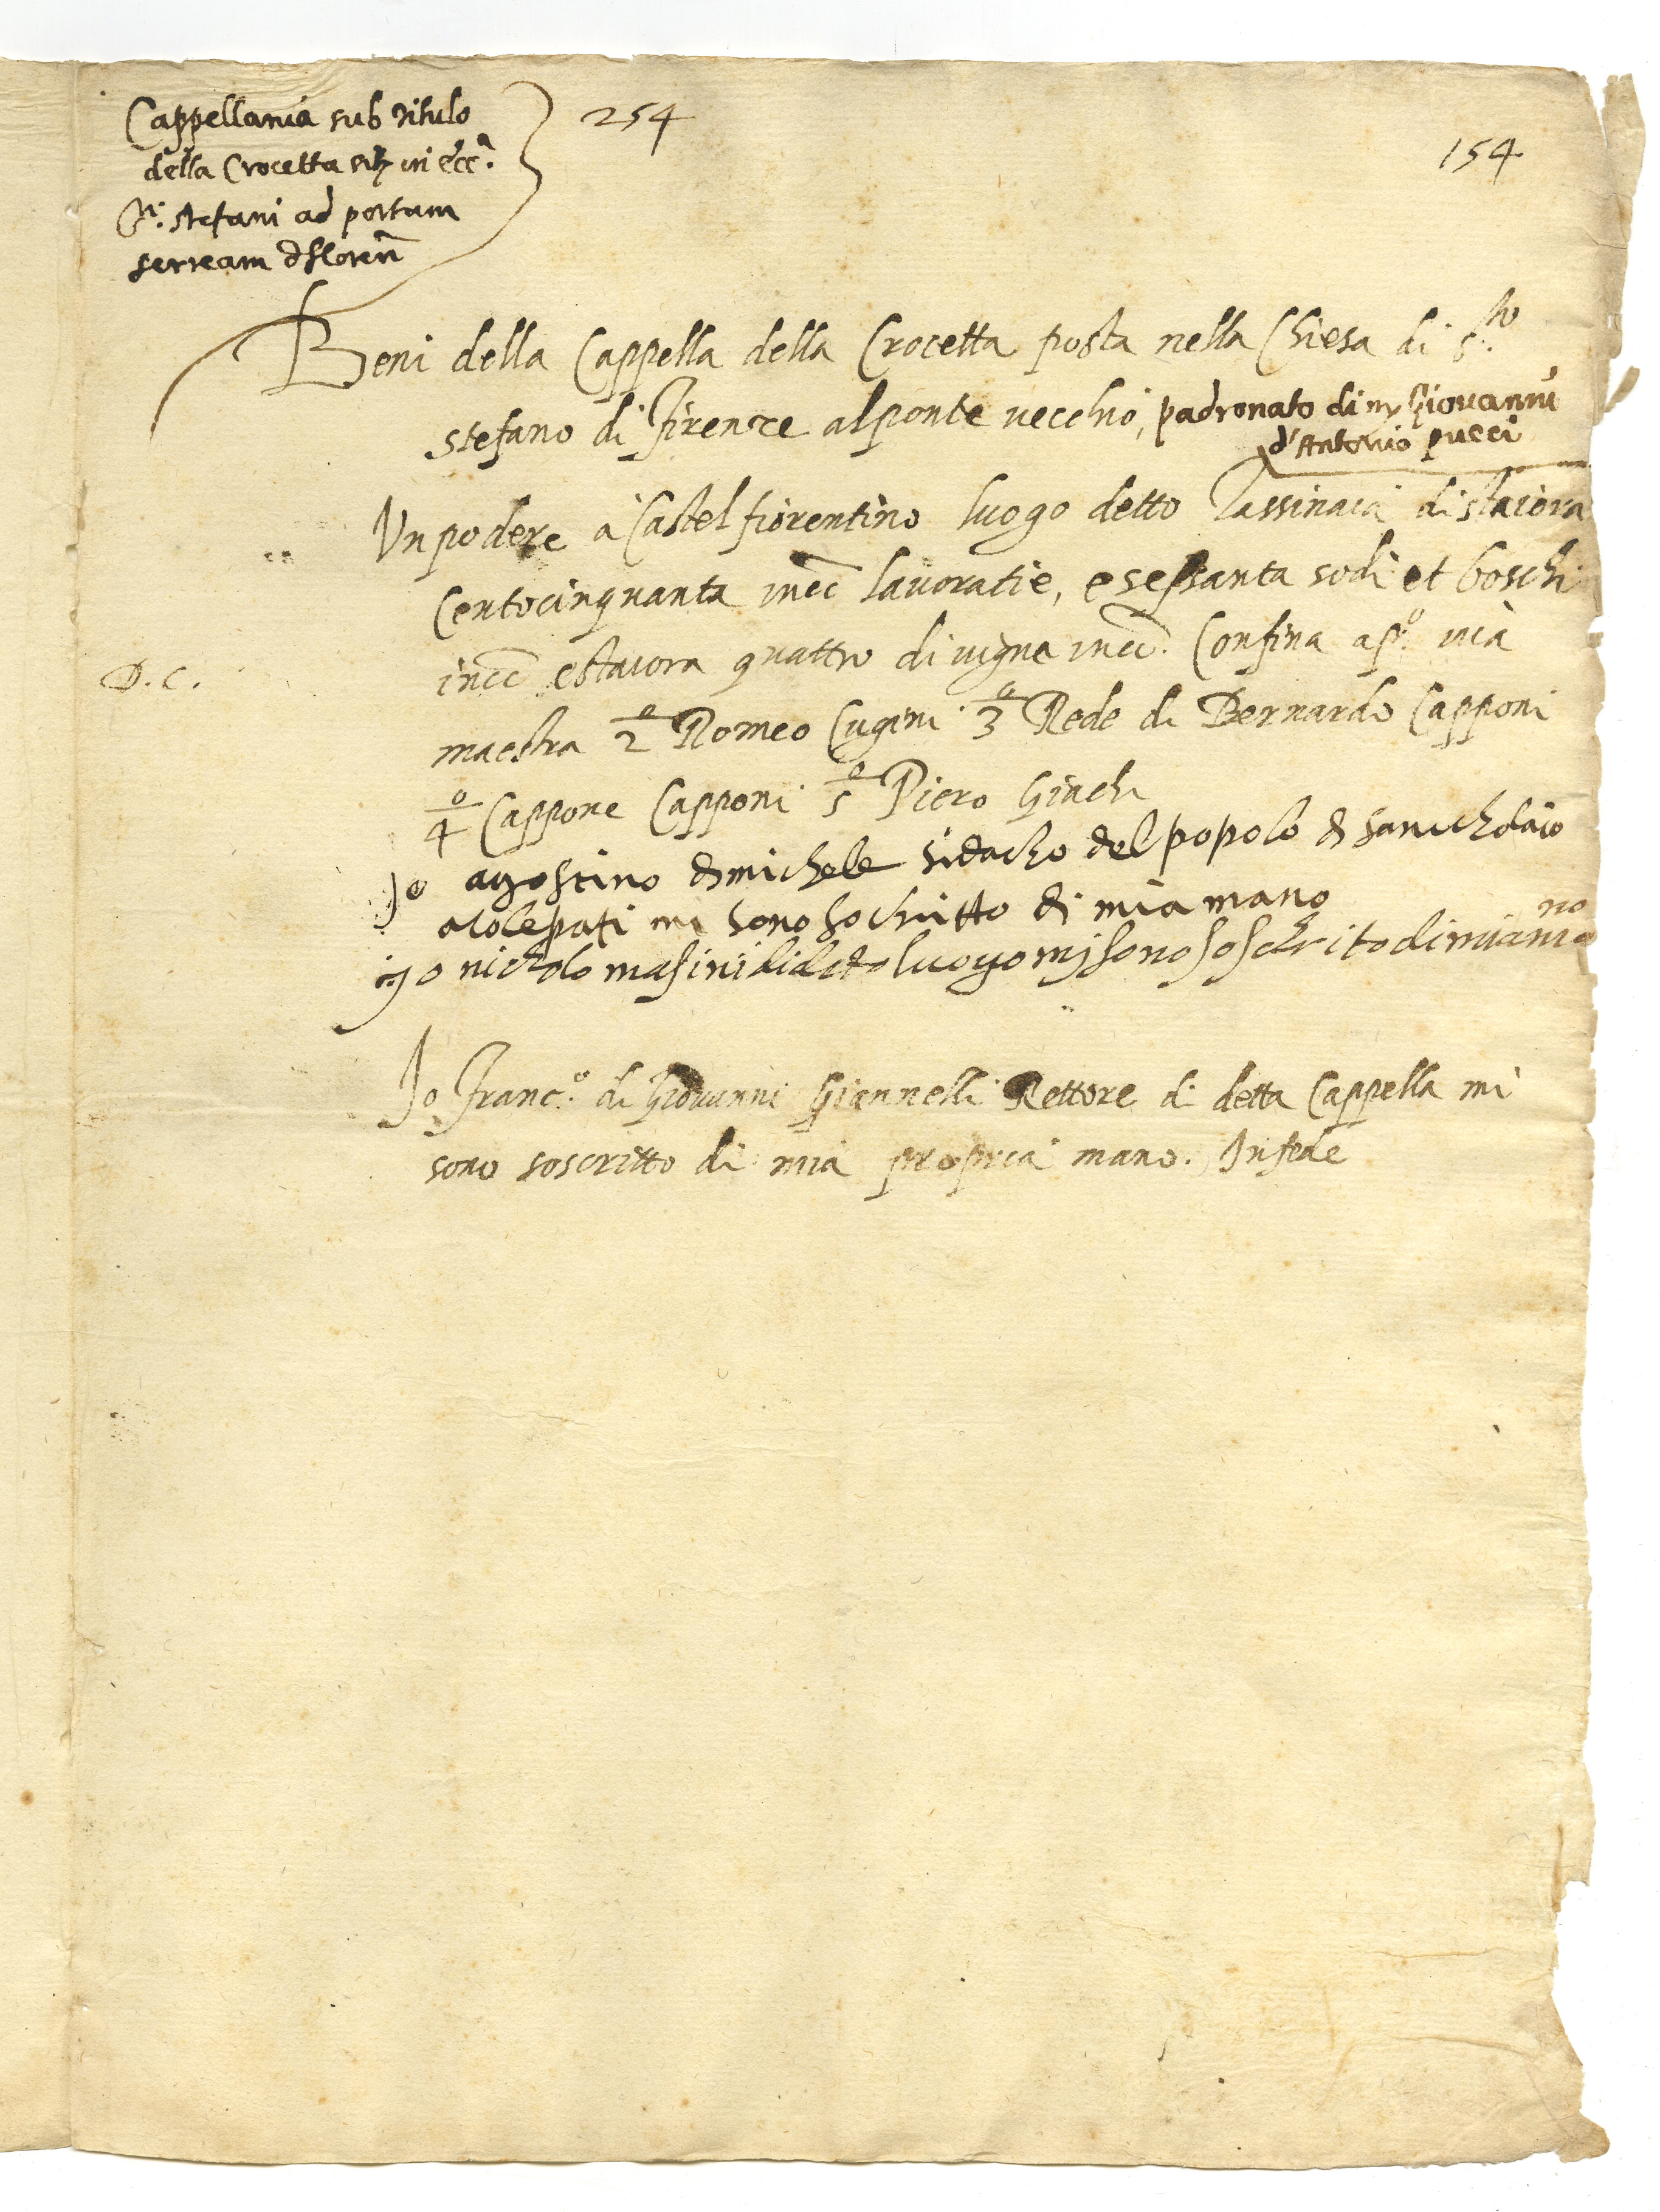 Cappellania sub titulo
della Crocetta sitȝ in ecc.ª
S.ti stefani ad portam
serream d florenˉ
254
154
Beni della Cappella della Crocetta posta nella Chiesa di S.to
stefano di Firenze al ponte vecchio, padronato di mȝ Giovanni
d'Antonio pucci
Un podere à Castel fiorentino luogo detto Tassinaia di staiora
Centocinquanta incˉ lavoratie, e sessanta sodi et boschi
D. C.
incˉ e staiora quattro di vigna incˉ. Confina a p.º via
maestra 2º Romeo Cugini 3º Rede di Bernardo Capponi
4º Cappone Capponi 5º Piero Giachi
Jo agostino di michele sidacho del popolo di sanicholaio
mi sono sochritto di mia mano
io nicholo masini di deto luogo mj sono soschrito di mia ma
no
Jo Franc.º di Giovanni Giannelli Rettore di detta Cappella mi
sono soscritto di mia propria mano. In fede